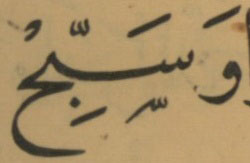 وَسَبِّحْ